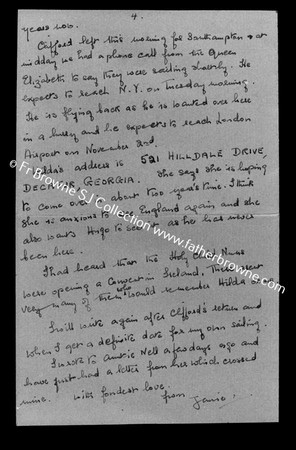 4.
years now.
Clifford left this morning for Southampton & at
midday we had a phone call from the Queen
Elizabeth to say they were sailing shortly. He
expects to reach N.Y. on Tuesday morning.
He is flying back as he is wanted over here
in a hurry and he expects to reach London
Airport on November 2nd.
Hilda's address is 521 HILLDALE DRIVE,
DECATUR, GEORGIA. She says she is hoping
to come over in about two year's time. I think
she is anxious to see England again and she
also wants Hugo to see it as he has never
been here.
I had heard that the Holy Child Nuns
were opening a Convent in Ireland. There aren't
very many of them who would remember Hilda
I will write again after Clifford's return and
when I get a definite date for my own sailing.
I wrote to Auntie Nell a few days ago and
have just had a letter from her which crossed
mine. With fondest love.
from Janie.
© Fr Browne's SJ Collection www.fatherbrowne.com